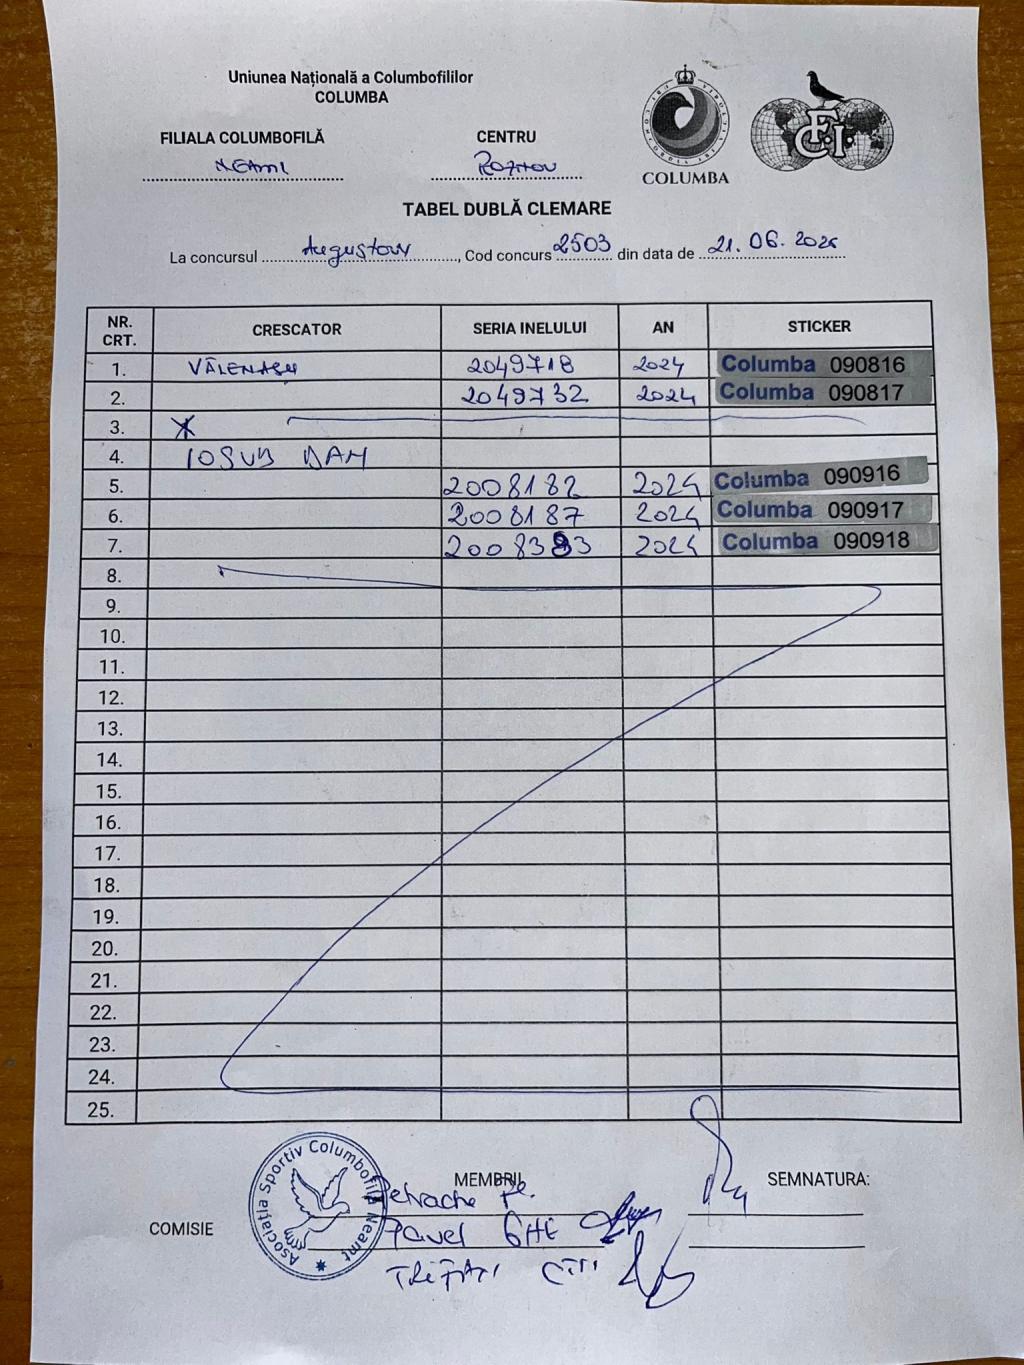 Uniunea Națională a Columbofililor
COLUMBA
FILIALA COLUMBOFILĂ
NEAMț
CENTRU
Roznov
COLUMBA
F.C.I.
TABEL DUBLĂ CLEMARE
La concursul Augustow, Cod concurs 2503 din data de 21.06.2025
NR. CRT. CRESCATOR SERIA INELULUI AN STICKER
1. VĂLENAȘU 2049718 2024 Columba 090816
2. 2049732 2024 Columba 090817
3.
4. IOSUB DAN
5. 2008182 2024 Columba 090916
6. 2008187 2024 Columba 090917
7. 2008393 2024 Columba 090918
8.
9.
10.
11.
12.
13.
14.
15.
16.
17.
18.
19.
20.
21.
22.
23.
24.
25.
COMISIE
Asociația Sportiv Columbofilă Neamț
MEMBRII,
SEMNATURA:
Petrache Pe.
Pavel GHE